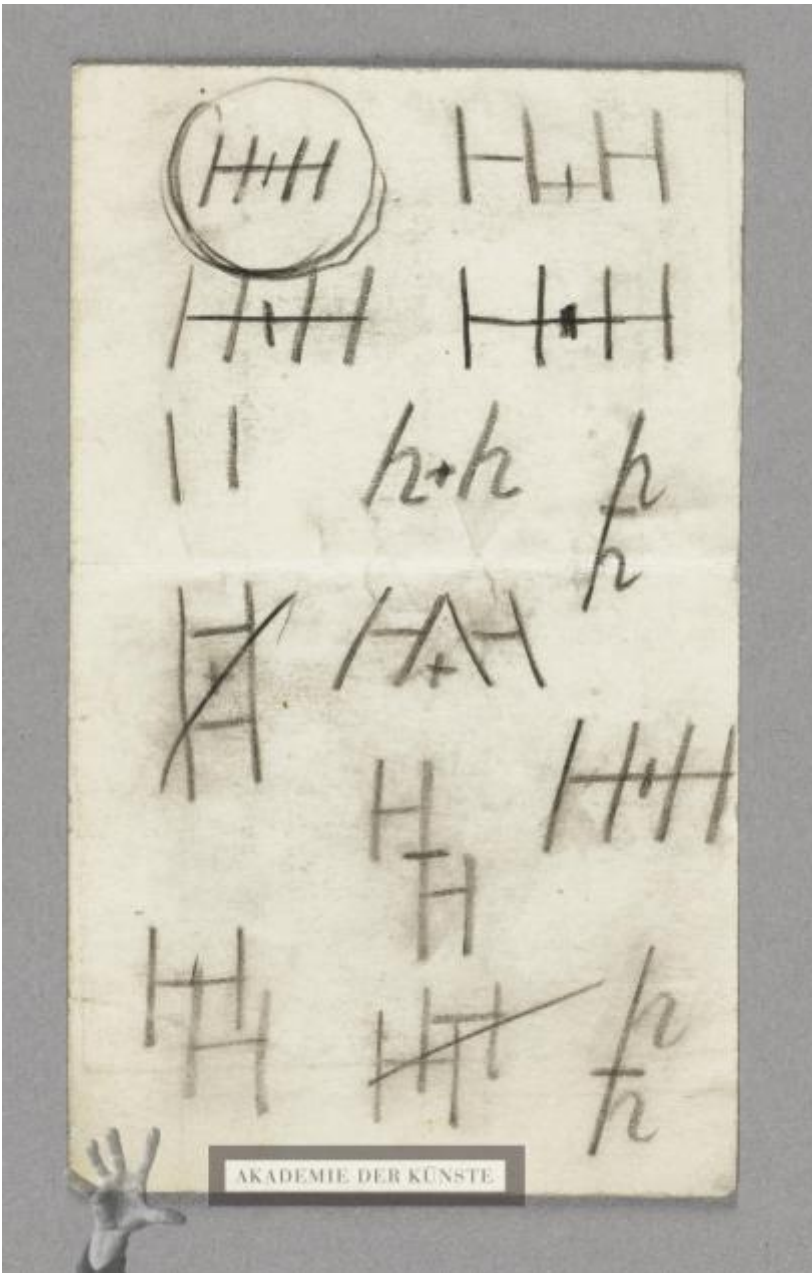 H+H H+H
H+H H+H
h+h h
h
H+H
H+H
H+H
H
H
H
H
H
H
h
h
AKADEMIE DER KÜNSTE